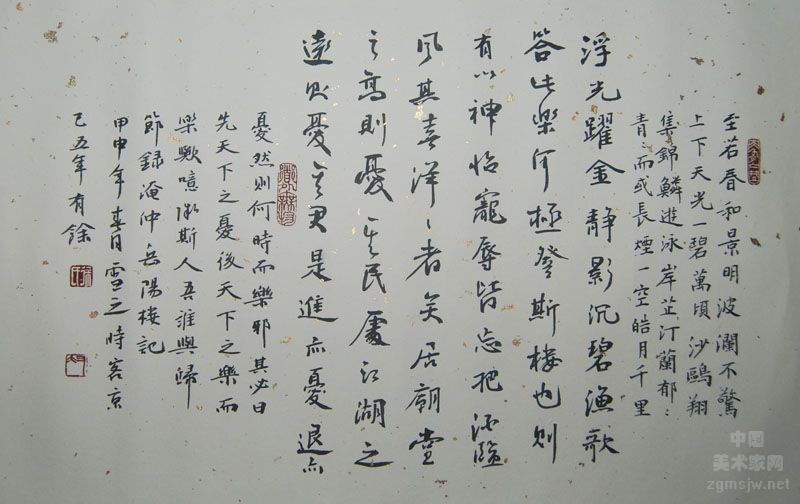 至若春和景明波瀾不驚
上下天光一碧萬頃沙鷗翔
集錦鱗遊泳岸芷汀蘭郁〻
青〻而或長煙一空皓月千里
浮光躍金靜影沉碧漁歌
答此樂何極登斯樓也則
有以神怡寵辱皆忘把酒臨
風其喜洋〻者矣居廟堂
之高則憂其民處江湖之
遠則憂其君是進亦憂退亦
憂然則何時而樂邪其必曰
先天下之憂後天下之樂而
樂歟噫微斯人吾誰與歸
節錄淹仲岳陽樓記
甲申年春月雪之時客京
已五年有餘
中国
美术家网
zgmsjw.net